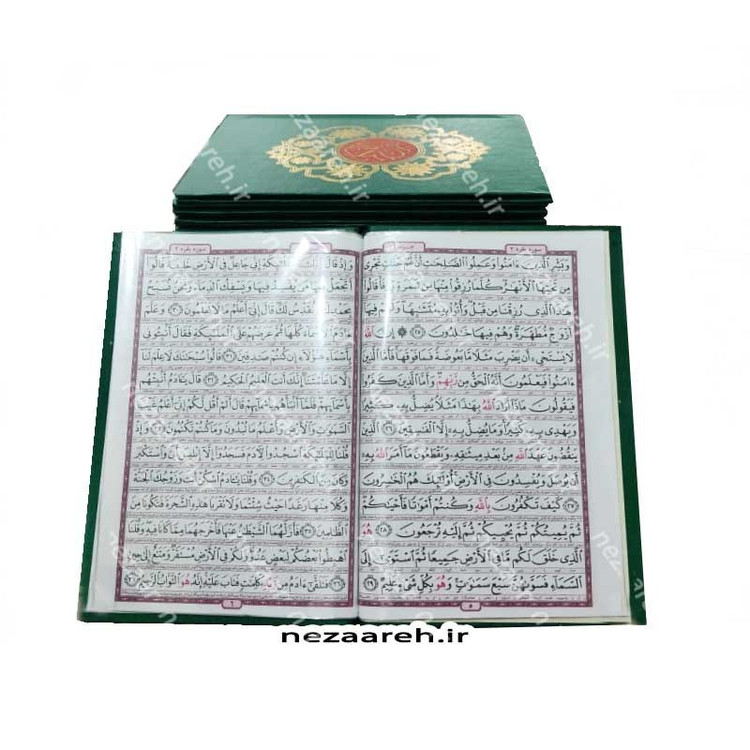 nezaareh.ir
سوره بقره ٢
وَبَشِّرِ الَّذِينَ ءَامَنُوا وَعَمِلُوا الصَّـٰلِحَـٰتِ أَنَّ لَهُمْ جَنَّـٰتٍ تَجْرِى
مِن تَحْتِهَا الْأَنْهَـٰرُ كُلَّمَا رُزِقُوا مِنْهَا مِن ثَمَرَةٍ رِّزْقًا قَالُوا
هَـٰذَا الَّذِى رُزِقْنَا مِن قَبْلُ وَأُتُوا بِهِ مُتَشَـٰبِهًا وَلَهُمْ فِيهَا
أَزْوَٰجٌ مُّطَهَّرَةٌ وَهُمْ فِيهَا خَـٰلِدُونَ ﴿٢٥﴾ ۞ إِنَّ اللَّهَ
لَا يَسْتَحْىِ أَن يَضْرِبَ مَثَلًا مَّا بَعُوضَةً فَمَا فَوْقَهَا فَأَمَّا الَّذِينَ
ءَامَنُوا فَيَعْلَمُونَ أَنَّهُ الْحَقُّ مِن رَّبِّهِمْ وَأَمَّا الَّذِينَ كَفَرُوا
فَيَقُولُونَ مَاذَا أَرَادَ اللَّهُ بِهَـٰذَا مَثَلًا يُضِلُّ بِهِ كَثِيرًا
وَيَهْدِى بِهِ كَثِيرًا وَمَا يُضِلُّ بِهِ إِلَّا الْفَـٰسِقِينَ ﴿٢٦﴾ الَّذِينَ
يَنقُضُونَ عَهْدَ اللَّهِ مِن بَعْدِ مِيثَـٰقِهِ وَيَقْطَعُونَ مَا أَمَرَ اللَّهُ بِهِ
أَن يُوصَلَ وَيُفْسِدُونَ فِى الْأَرْضِ أُولَـٰئِكَ هُمُ الْخَـٰسِرُونَ
﴿٢٧﴾ كَيْفَ تَكْفُرُونَ بِاللَّهِ وَكُنتُمْ أَمْوَٰتًا فَأَحْيَـٰكُمْ
ثُمَّ يُمِيتُكُمْ ثُمَّ يُحْيِيكُمْ ثُمَّ إِلَيْهِ تُرْجَعُونَ ﴿٢٨﴾ هُوَ
الَّذِى خَلَقَ لَكُم مَّا فِى الْأَرْضِ جَمِيعًا ثُمَّ اسْتَوَىٰ إِلَى
السَّمَاءِ فَسَوَّىٰهُنَّ سَبْعَ سَمَـٰوَٰتٍ وَهُوَ بِكُلِّ شَىْءٍ عَلِيمٌ ﴿٢٩﴾
٥
سوره بقره ٢
وَإِذْ قَالَ رَبُّكَ لِلْمَلَـٰئِكَةِ إِنِّى جَاعِلٌ فِى الْأَرْضِ خَلِيفَةً قَالُوا
أَتَجْعَلُ فِيهَا مَن يُفْسِدُ فِيهَا وَيَسْفِكُ الدِّمَاءَ وَنَحْنُ نُسَبِّحُ
بِحَمْدِكَ وَنُقَدِّسُ لَكَ قَالَ إِنِّى أَعْلَمُ مَا لَا تَعْلَمُونَ ﴿٣٠﴾ وَعَلَّمَ
ءَادَمَ الْأَسْمَاءَ كُلَّهَا ثُمَّ عَرَضَهُمْ عَلَى الْمَلَـٰئِكَةِ فَقَالَ أَنبِـُٔونِى
بِأَسْمَاءِ هَـٰؤُلَاءِ إِن كُنتُمْ صَـٰدِقِينَ ﴿٣١﴾ قَالُوا سُبْحَـٰنَكَ لَا عِلْمَ لَنَا
إِلَّا مَا عَلَّمْتَنَا إِنَّكَ أَنتَ الْعَلِيمُ الْحَكِيمُ ﴿٣٢﴾ قَالَ يَـٰـَٔادَمُ أَنبِئْهُم
بِأَسْمَائِهِمْ فَلَمَّا أَنبَأَهُم بِأَسْمَائِهِمْ قَالَ أَلَمْ أَقُل لَّكُمْ إِنِّى أَعْلَمُ غَيْبَ
السَّمَـٰوَٰتِ وَالْأَرْضِ وَأَعْلَمُ مَا تُبْدُونَ وَمَا كُنتُمْ تَكْتُمُونَ ﴿٣٣﴾ وَإِذْ
قُلْنَا لِلْمَلَـٰئِكَةِ اسْجُدُوا لِـَٔادَمَ فَسَجَدُوا إِلَّا إِبْلِيسَ أَبَىٰ وَاسْتَكْبَرَ
وَكَانَ مِنَ الْكَـٰفِرِينَ ﴿٣٤﴾ وَقُلْنَا يَـٰـَٔادَمُ اسْكُنْ أَنتَ وَزَوْجُكَ الْجَنَّةَ
وَكُلَا مِنْهَا رَغَدًا حَيْثُ شِئْتُمَا وَلَا تَقْرَبَا هَـٰذِهِ الشَّجَرَةَ فَتَكُونَا مِنَ
الظَّـٰلِمِينَ ﴿٣٥﴾ فَأَزَلَّهُمَا الشَّيْطَـٰنُ عَنْهَا فَأَخْرَجَهُمَا مِمَّا كَانَا فِيهِ وَقُلْنَا
اهْبِطُوا بَعْضُكُمْ لِبَعْضٍ عَدُوٌّ وَلَكُمْ فِى الْأَرْضِ مُسْتَقَرٌّ وَمَتَـٰعٌ إِلَىٰ حِينٍ
﴿٣٦﴾ فَتَلَقَّىٰ ءَادَمُ مِن رَّبِّهِ كَلِمَـٰتٍ فَتَابَ عَلَيْهِ إِنَّهُ هُوَ التَّوَّابُ الرَّحِيمُ ﴿٣٧﴾
٦
nezaareh.ir